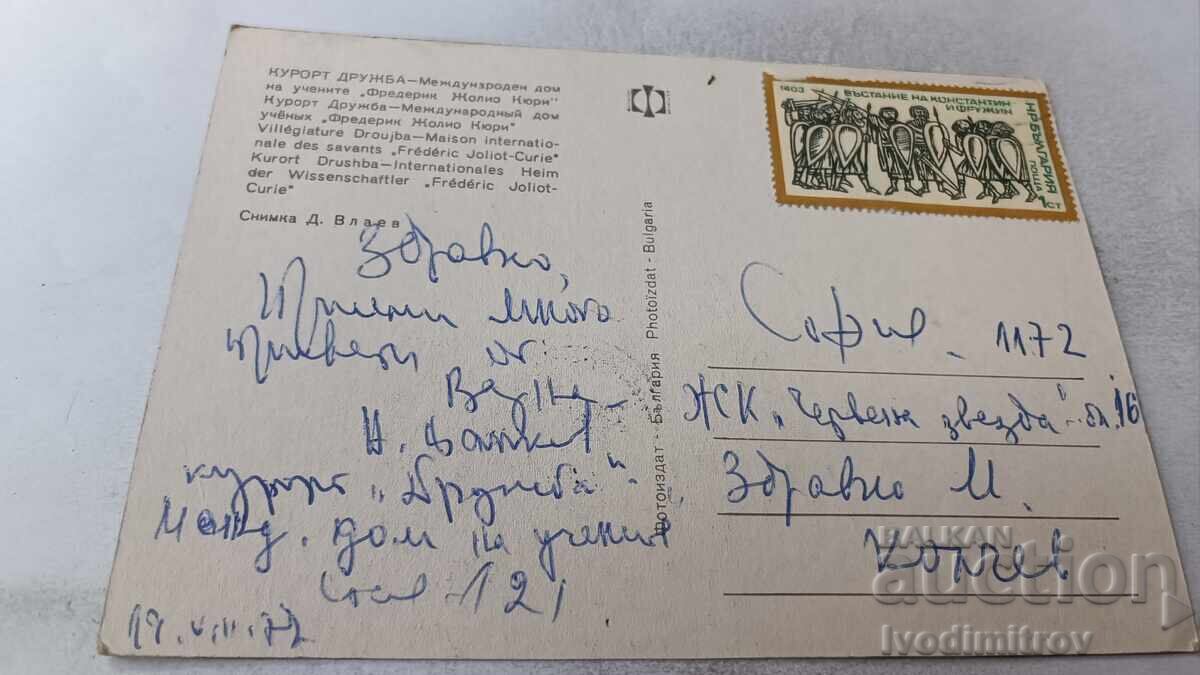 КУРОРТ ДРУЖБА—Международен дом
на учените "Фредерик Жолио Кюри"
Курорт Дружба—Международный дом
учёных "Фредерик Жолио Кюри"
Villégiature Droujba—Maison internatio-
nale des savants "Frédéric Joliot-Curie"
Kurort Drushba—Internationales Heim
der Wissenschaftler "Frédéric Joliot-
Curie"
Снимка Д. Влаев
Здравко,
Приеми много
привети от
курорт "Дружба"
Межд. дом на учения
стая 121
Фотоиздат - България Photoïzdat - Bulgaria
1403
ВЪСТАНИЕ НА КОНСТАНТИН
И ФРУЖИН
НР БЪЛГАРИЯ
ПОЩА
1 СТ
София - 1172
ЖСК "Червена звезда" бл. 16
Здравко М.
BALKAN
auction
Ivodimitrov